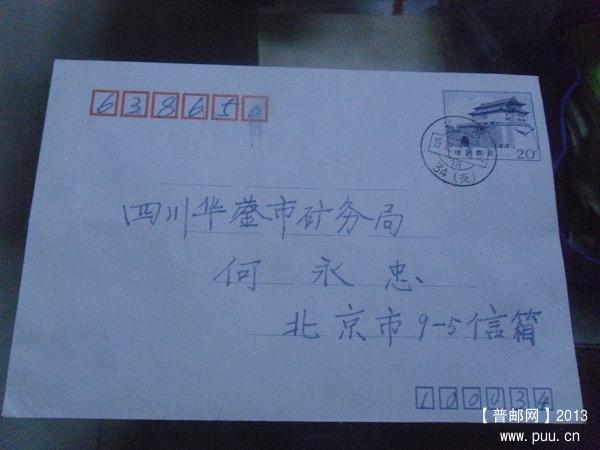 638650
中国邮政
20分
19
34(支)
四川华蓥市矿务局
何永忠
北京市9-5信箱
100034
【普邮网】2013
www.puu.cn